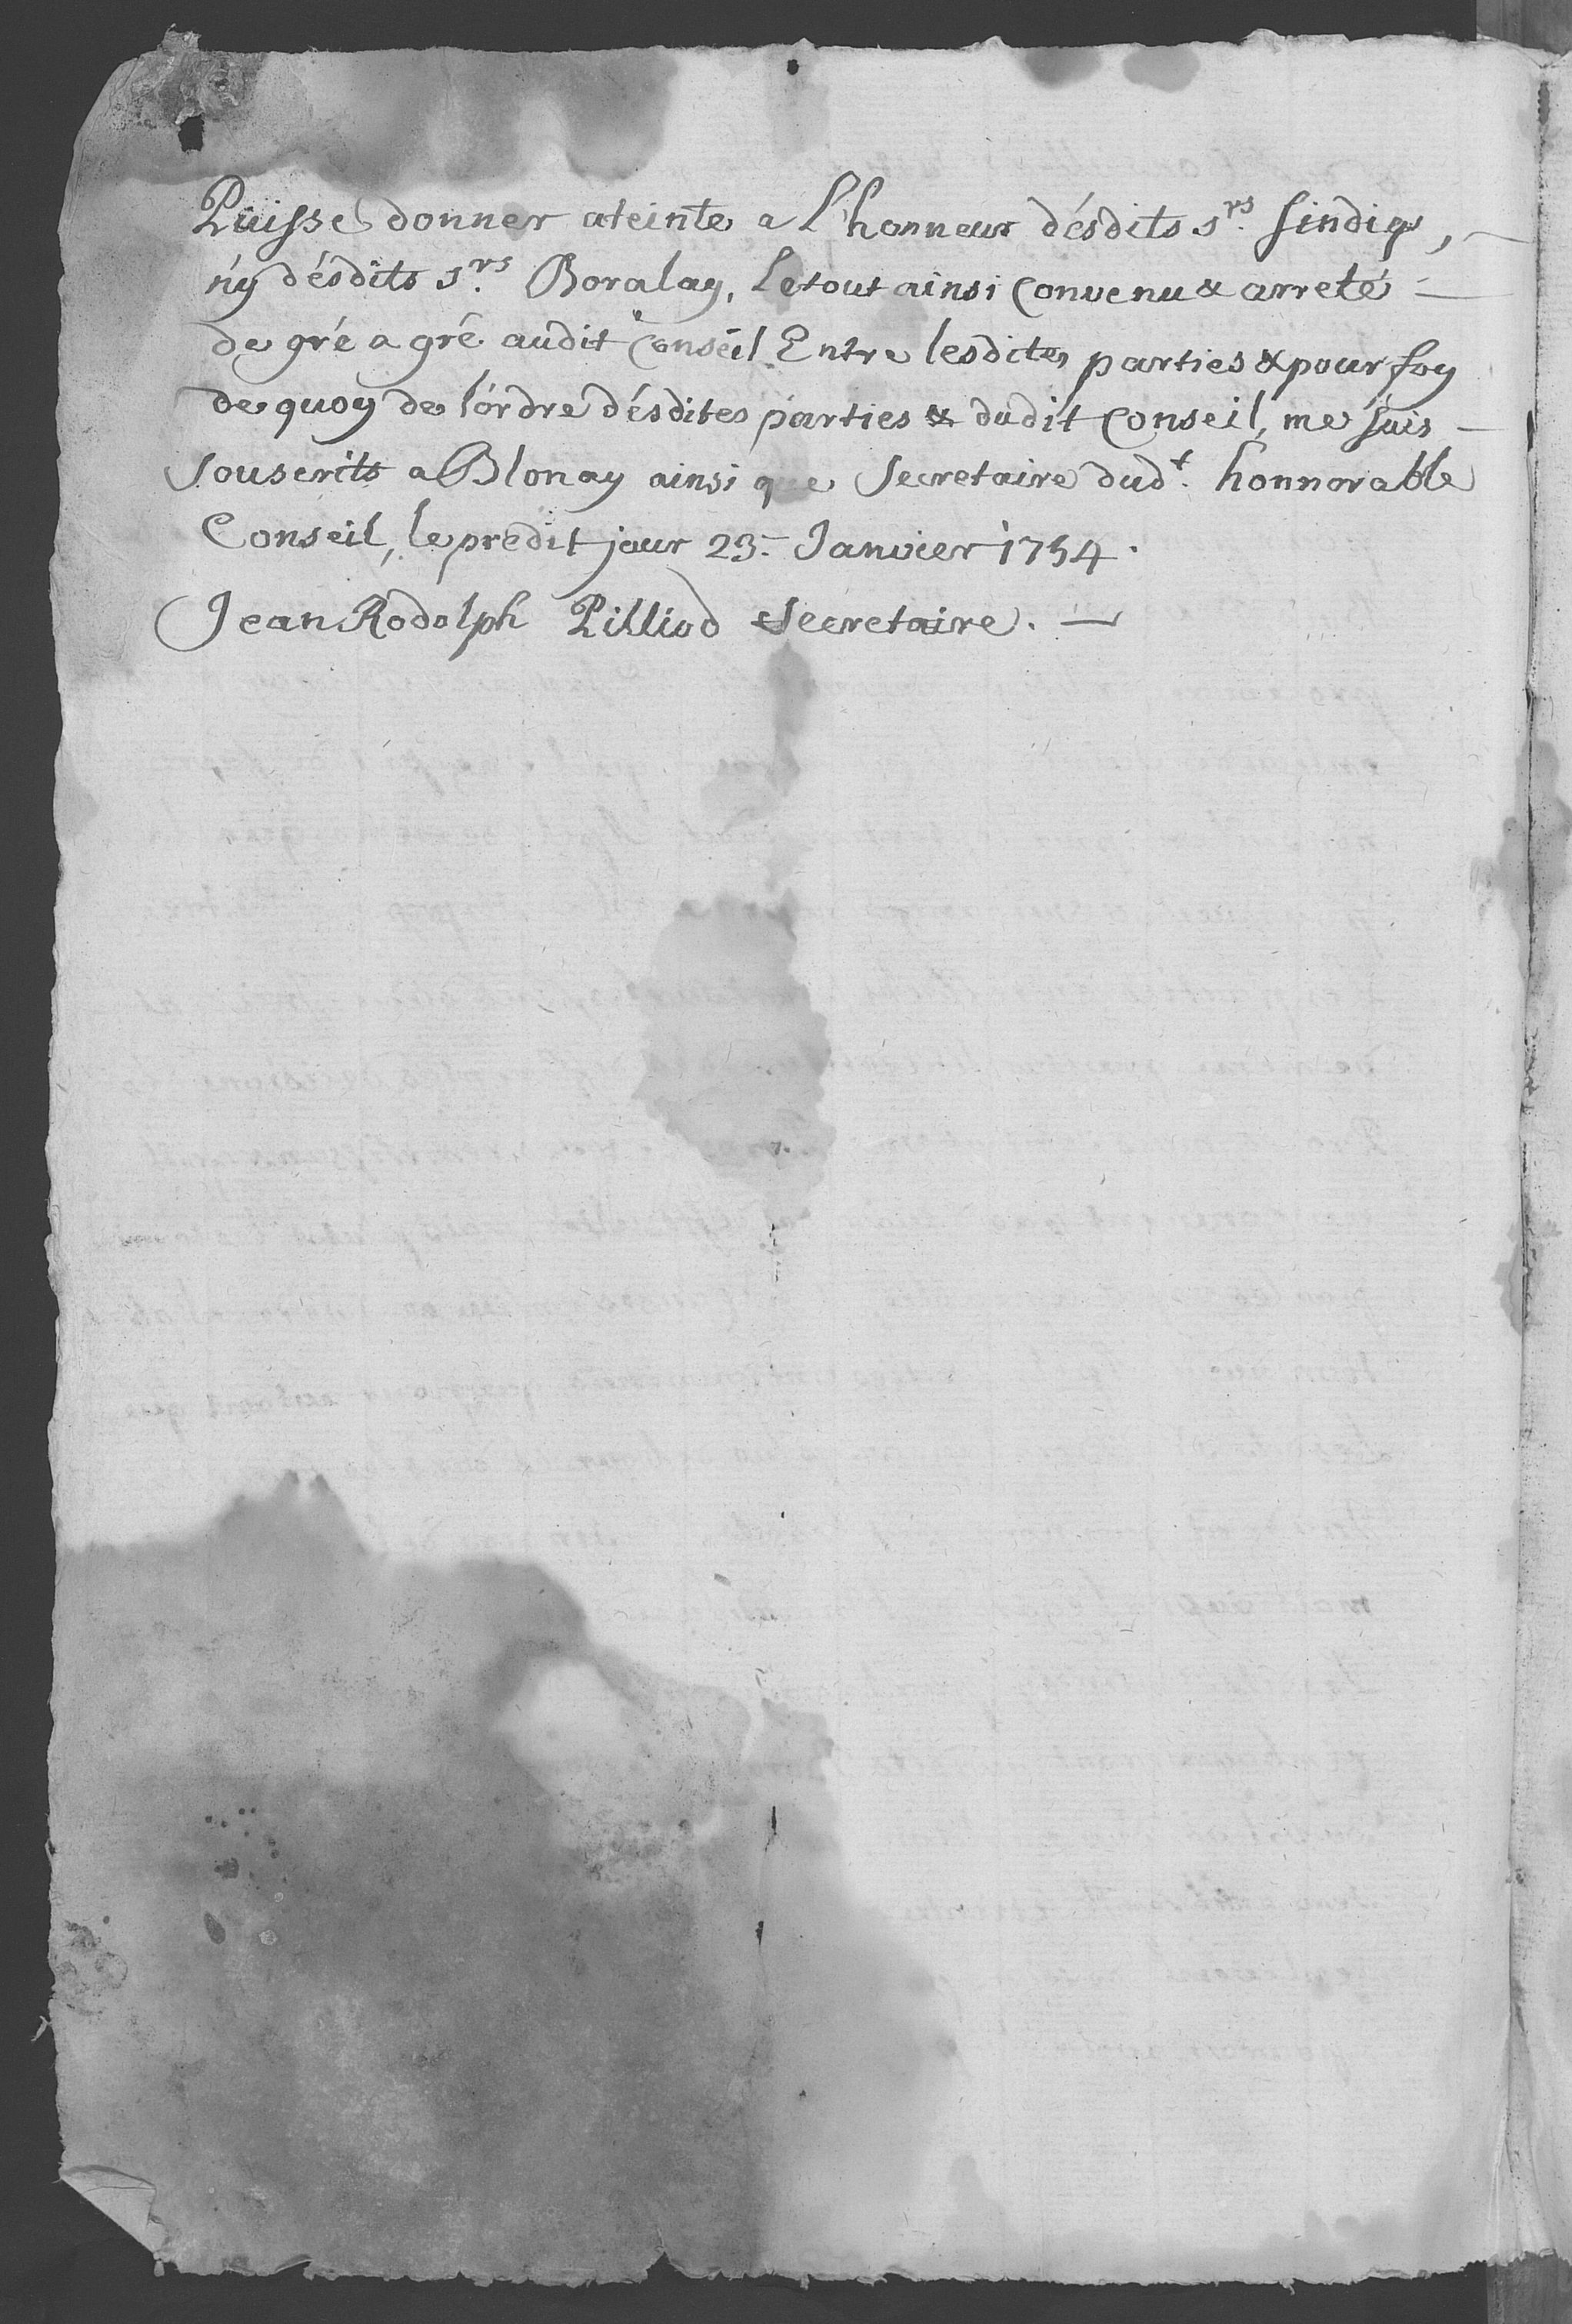 Puisse donner ateinte a l'honneur désdits srs. sindiqs, —
n'y désdits srs. Boralay, le tout ainsi Convenu & arreté —
de gré a gré audit Conseil Entre lesdites parties & pour foy
de quoy de l'ordre désdites parties & dudit Conseil, me suis —
souscrits a Blonay ainsi que Secretaire dudt. honnorable
Conseil, le predit jour 23.e Janvier 1754.
Jean Rodolph Pilliod Secretaire. —